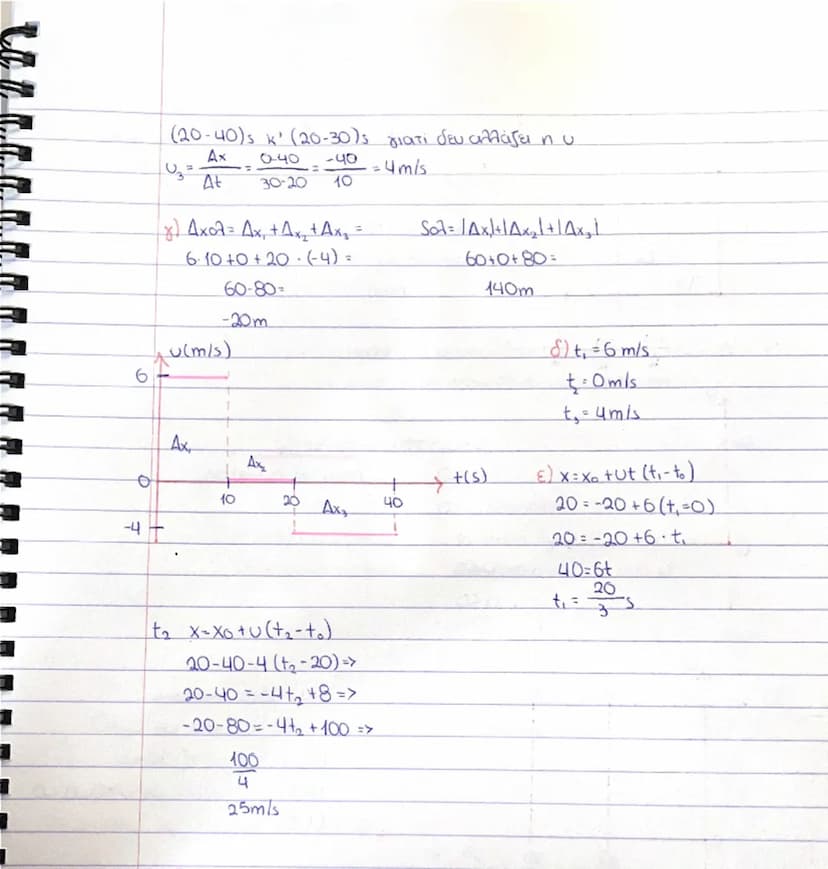 (20-40)s κ' (20-30)s γιατί δεν αλλάζει η υ
υ₃ = Δx/Δt = 0-40/30-20 = -40/10 = 4m/s
γ) Δxολ = Δx₁ + Δx₂ + Δx₃ =
6·10+0+20·(-4) =
60-80=
-20m
Sολ = |Δx₁|+|Δx₂|+|Δx₃|
60+0+80=
140m
υ(m/s)
6
Δx₁
Δx₂
0
10
20
40
t(s)
Δx₃
-4
δ) t₁ = 6 m/s
t₂ = 0m/s
t₃ = 4m/s
ε) x=x₀+υt (t₁-t₀)
20 = -20+6(t₁=0)
20 = -20+6·t₁
40=6t
t₁ = 20/3 s
t₂ x=x₀+υ(t₂-t₀)
20-40-4(t₂-20)=>
20-40 = -4t₂+8 =>
-20-80=-4t₂+100 =>
100/4
25m/s